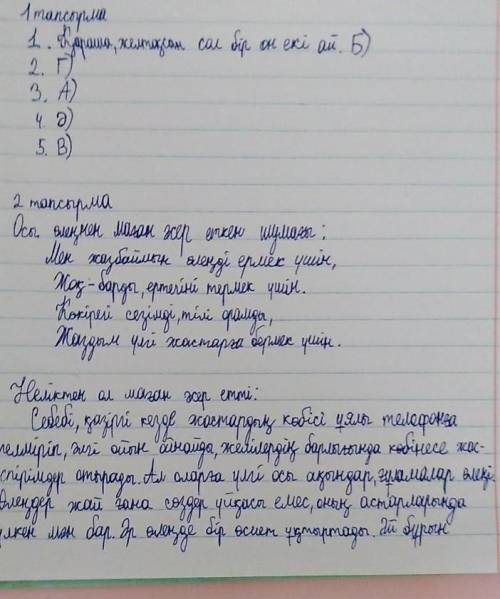 1 тапсырма
1. Қараша, желтоқсан сол бір он екі ай. Б)
2. Г)
3. А)
4. Ә)
5. В)
2 тапсырма
Осы өлеңнен маған әсер еткен шумағы:
Мен жазбаймын өлеңді ермек үшін,
Жоқ-барды, ертегіні термек үшін.
Көкірегі сезімді, тілі орамды,
Жаздым үлгі жастарға бермек үшін.
Неліктен ол маған әсер етті:
Себебі, қазіргі кезде жастардың көбісі ұялы телефонға
телміріп, әлгі ойын ойнайды, желілердің барлығында көбінесе жас-
өспірімдер отырады. Ал оларға үлгі осы ақындар, ғұламалар өлеңі.
Өлеңдер жай ғана сөздер ұйқасы емес, оның астарларында
үлкен мән бар. Әр өлеңде бір өсиет ұқтыртады. Әй бұрын